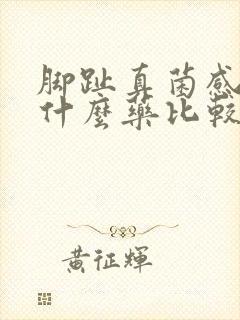 脚趾真菌感
什麼藥比較
黃征輝